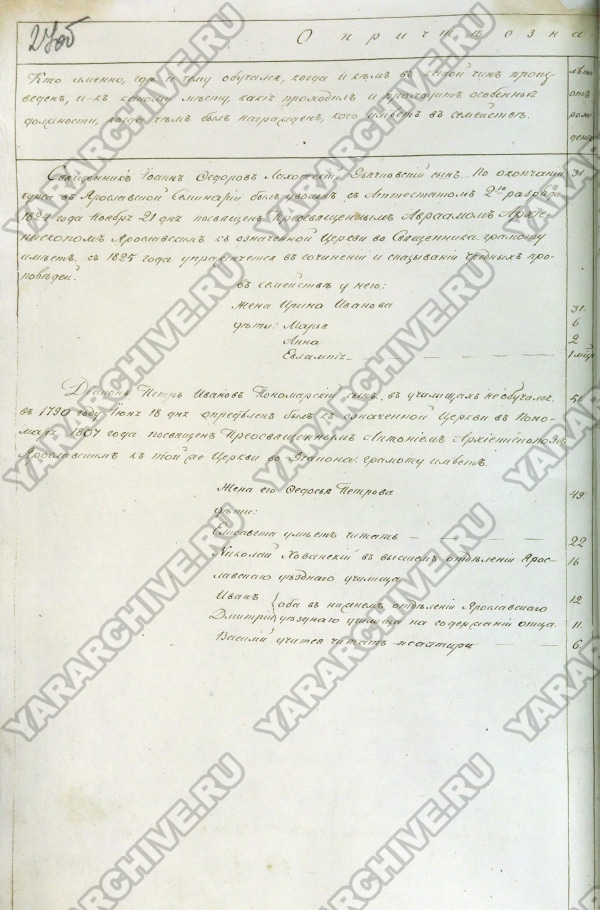 27об
О причт позна
Кто именно, где и чему обучался, когда и кѣмъ въ какой чинъ произ-
веденъ, и къ какому мѣсту, какіе проходилъ и проходитъ особенныя
должности, когда чѣмъ былъ награжденъ, кого имѣетъ въ семействѣ.
лѣта
отъ
рож
денія
Священникъ Іоаннъ Ѳедоровъ сынъ. По окончаніи 31.
курса въ Ярославской Семинаріи былъ уволенъ съ Аттестатомъ 2го разряда.
1824 года Ноября 21 дня посвященъ Преосвященнымъ Авраамомъ Архіе-
пископомъ Ярославскимъ къ означенной Церкви во Священника. грамоту
имѣетъ. съ 1825 года упражняется въ сочиненіи и сказываніи про-
повѣдей.
въ семействѣ у него:
Жена Ирина Иванова 31.
дѣти: Марья 6
Анна 2
Евлампія 1
Діаконъ Петръ Ивановъ Пономарскій сынъ. въ училищахъ не обучался. 51.
въ 1790 году Іюня 18 дня опредѣленъ былъ къ означенной Церкви въ Поно-
маря, 1807 года посвященъ Преосвященнымъ Антоніемъ Архіепископомъ
Ярославскимъ къ той же Церкви во Діакона. грамоту имѣетъ.
Жена его Ѳедосья Петрова 49.
дѣти:
Елисавета умѣетъ читать 22
Николай Хованскій въ высшемъ отдѣленіи Ярос- 16
лавскаго уѣзднаго училища
Иванъ оба въ нижнемъ отдѣленіи Ярославскаго 12
Дмитрій уѣзднаго училища на содержаніи отца. 11.
Василій учится читать псалтири 6
YARARCHIVE.RU
YARARCHIVE.RU
YARARCHIVE.RU
YARARCHIVE.RU
YARARCHIVE.RU
YARARCHIVE.RU
YARARCHIVE.RU
YARARCHIVE.RU
YARARCHIVE.RU
YARARCHIVE.RU
YARARCHIVE.RU
YARARCHIVE.RU